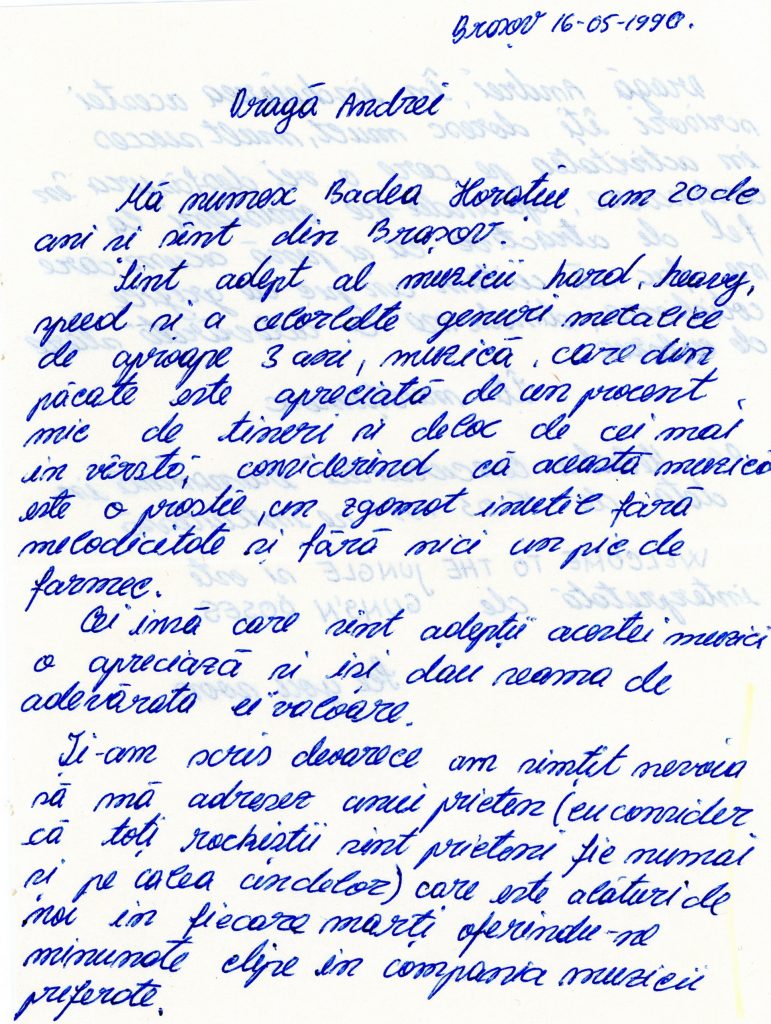 Brașov 16-05-1990.
Dragă Andrei
Mă numesc Badea Horațiu am 20 de
ani si sînt din Brașov.
Sînt adept al muzicii hard, heavy,
speed si a celorlalte genuri metalice
de aproape 3 ani, muzică, care din
păcate este apreciată de un procent
mic de tineri si deloc de cei mai
in vârstă, considerind că această muzică
este o prostie, un zgomot inutil fără
melodicitate si fără nici un pic de
farmec.
Cei insă care sint adepții acestei muzici
o apreciază si isi dau seama de
adevărata ei valoare.
Ți-am scris deoarece am simțit nevoia
să mă adresez unui prieten (eu consider
că toți rockiștii sint prieteni fie numai
si pe calea undelor) care este alături de
noi in fiecare marți oferindu-ne
minunate clipe in compania muzicii
preferate.